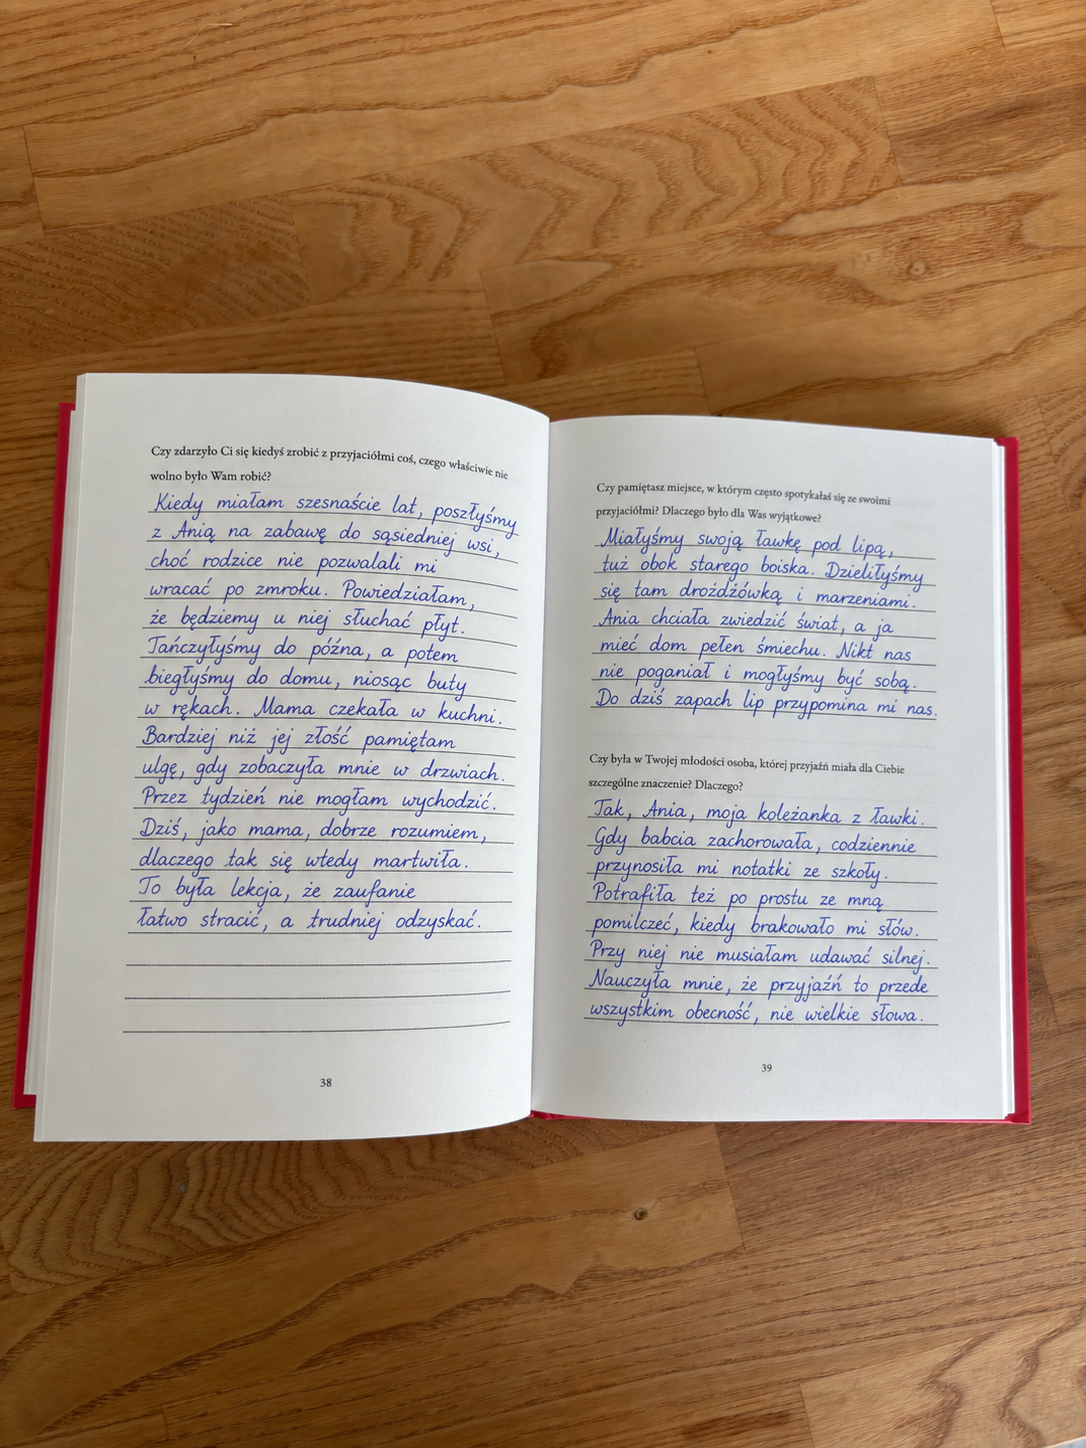 Czy zdarzyło Ci się kiedyś zrobić z przyjaciółmi coś, czego właściwie nie
wolno było Wam robić?
Kiedy miałam szesnaście lat, poszłyśmy
z Anią na zabawę do sąsiedniej wsi,
choć rodzice nie pozwalali mi
wracać po zmroku. Powiedziałam,
że będziemy u niej słuchać płyt.
Tańczyłyśmy do późna, a potem
biegłyśmy do domu, niosąc buty
w rękach. Mama czekała w kuchni.
Bardziej niż jej złość pamiętam
ulgę, gdy zobaczyła mnie w drzwiach.
Przez tydzień nie mogłam wychodzić.
Dziś, jako mama, dobrze rozumiem,
dlaczego tak się wtedy martwiła.
To była lekcja, że zaufanie
łatwo stracić, a trudniej odzyskać.
38
Czy pamiętasz miejsce, w którym często spotykałaś się ze swoimi
przyjaciółmi? Dlaczego było dla Was wyjątkowe?
Miałyśmy swoją ławkę pod lipą,
tuż obok starego boiska. Dzieliłyśmy
się tam drożdżówką i marzeniami.
Ania chciała zwiedzić świat, a ja
mieć dom pełen śmiechu. Nikt nas
nie poganiał i mogłyśmy być sobą.
Do dziś zapach lip przypomina mi nas.
Czy była w Twojej młodości osoba, której przyjaźń miała dla Ciebie
szczególne znaczenie? Dlaczego?
Tak, Ania, moja koleżanka z ławki.
Gdy babcia zachorowała, codziennie
przynosiła mi notatki ze szkoły.
Potrafiła też po prostu ze mną
pomilczeć, kiedy brakowało mi słów.
Przy niej nie musiałam udawać silnej.
Nauczyła mnie, że przyjaźń to przede
wszystkim obecność, nie wielkie słowa.
39